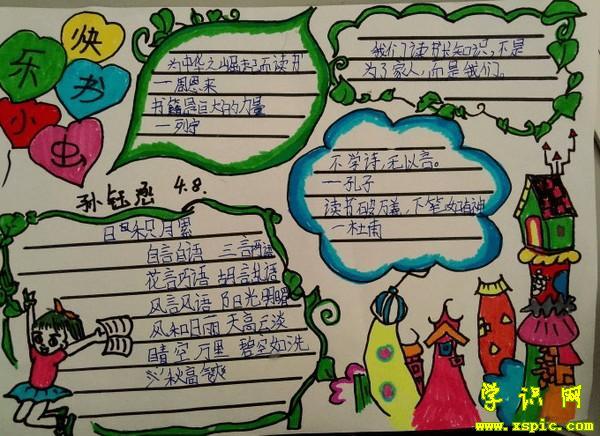 快乐小书虫
为中华之崛起而读书
一周恩来
书籍是巨大的力量
一列宁
我们读书长知识，不是
为了家人，而是我们。
不学诗，无以言。
一孔子
读书破万卷，下笔如有神
一杜甫
孙钰涵 4.8.
日积月累
自言自语 三言两语
花言巧语 胡言乱语
风言风语 阳光明媚
风和日丽 天高云淡
晴空万里 碧空如洗
秋高气
学识网
www.xspic.com